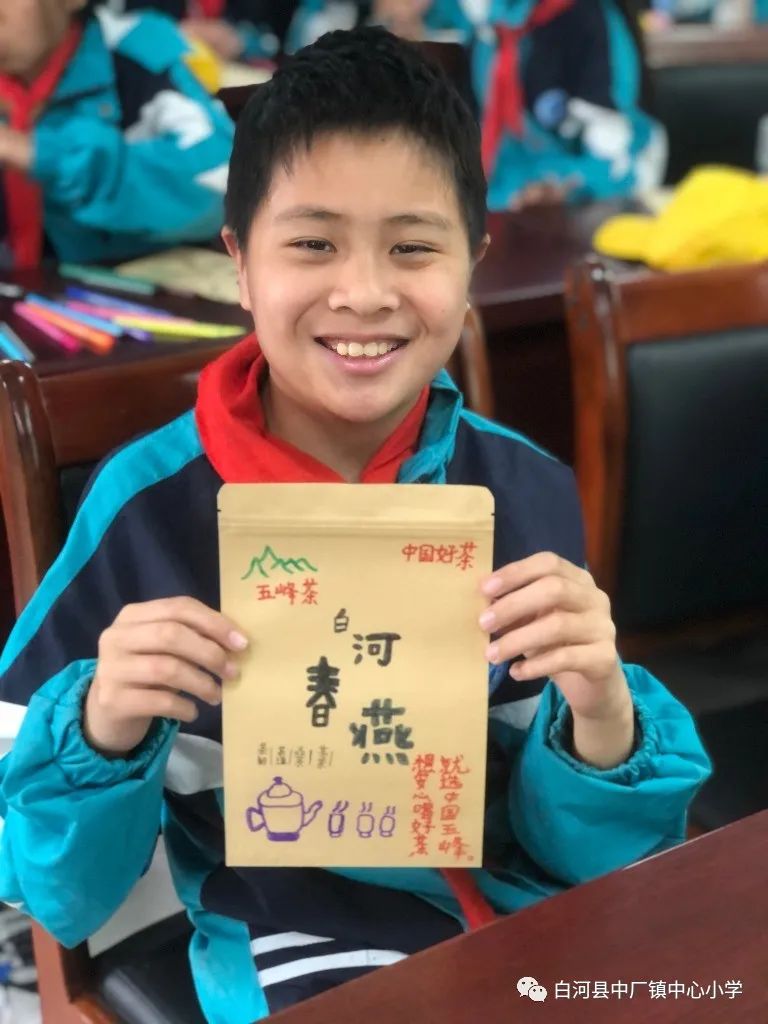 五峰茶
中国好茶
白河
春燕
想安心喝好茶
就选中国五峰。
白河县中厂镇中心小学